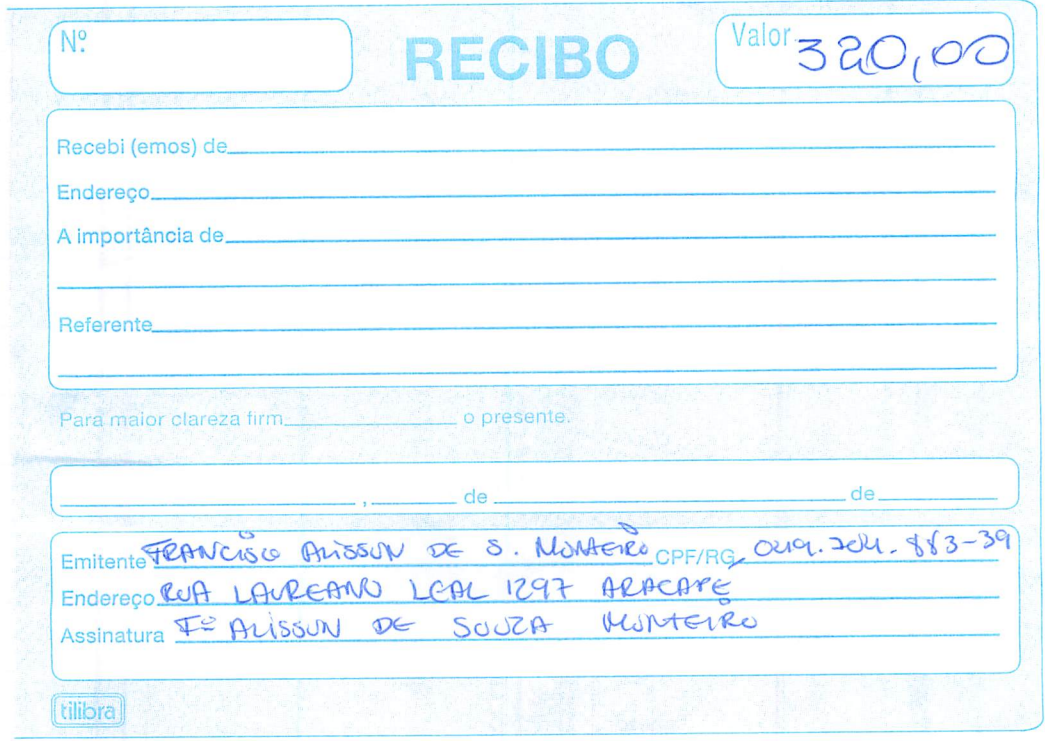 Nº RECIBO Valor 320,00
Recebi (emos) de
Endereço
A importância de
Referente
Para maior clareza firm o presente.
, de de
Emitente FRANCISCO ALISSON DE S. MONTEIRO CPF/RG
Endereço RUA LAUREANO LEAL 1297 ARACAPÉ
Assinatura Fº ALISSON DE SOUZA MONTEIRO
tilibra